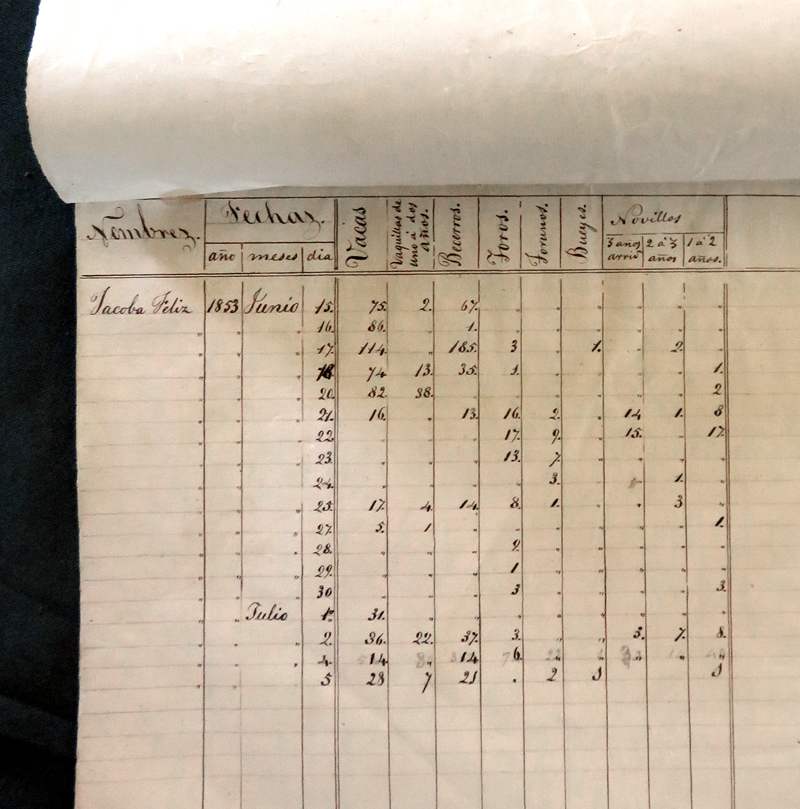 Nombres. Fechas. Vacas Vaquillas de uno á dos años. Becerros. Toros. Torunos. Bueyes. Novillos
año meses dia 3 años arriv 2 á 3 años 1 á 2 años.
Jacoba Feliz 1853 Junio 15. 75. 2. 67. " " " " " "
" " " 16. 86. " 1. " " " " " "
" " " 17. 114. " 185. 3 " 1. " 2. "
" " " 18. 74 13. 35. 1. " " " " 1.
" " " 20. 82 38. " " " " " " 2
" " " 21. 16. " 13. 16. 2. " 14 1. 8
" " " 22. " " " 17. 9. " 15. " 17.
" " " 23. " " " 13. 7. " " " "
" " " 24. " " " " 3. " " 1. "
" " " 25. 17. 4. 14. 8. 1. " " 3 "
" " " 27. 5. 1 " " " " " " 1.
" " " 28. " " " 2. " " " " "
" " " 29. " " " 1 " " " " "
" " " 30 " " " 3 " " " " 3.
" " Julio 1.º 31. " " " " " " " "
" " " 2. 36. 22. 37. 3. " " 3. 7. 8.
" " " 4. 14 " 14 6. " " " " "
" " " 5 28 7 21 . 2 1 1